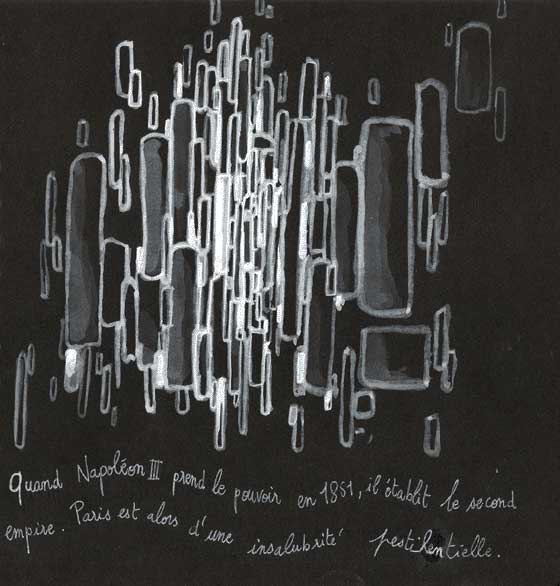 Quand Napoléon III prend le pouvoir en 1851, il établit le second
empire. Paris est alors d'une insalubrité pestilentielle.